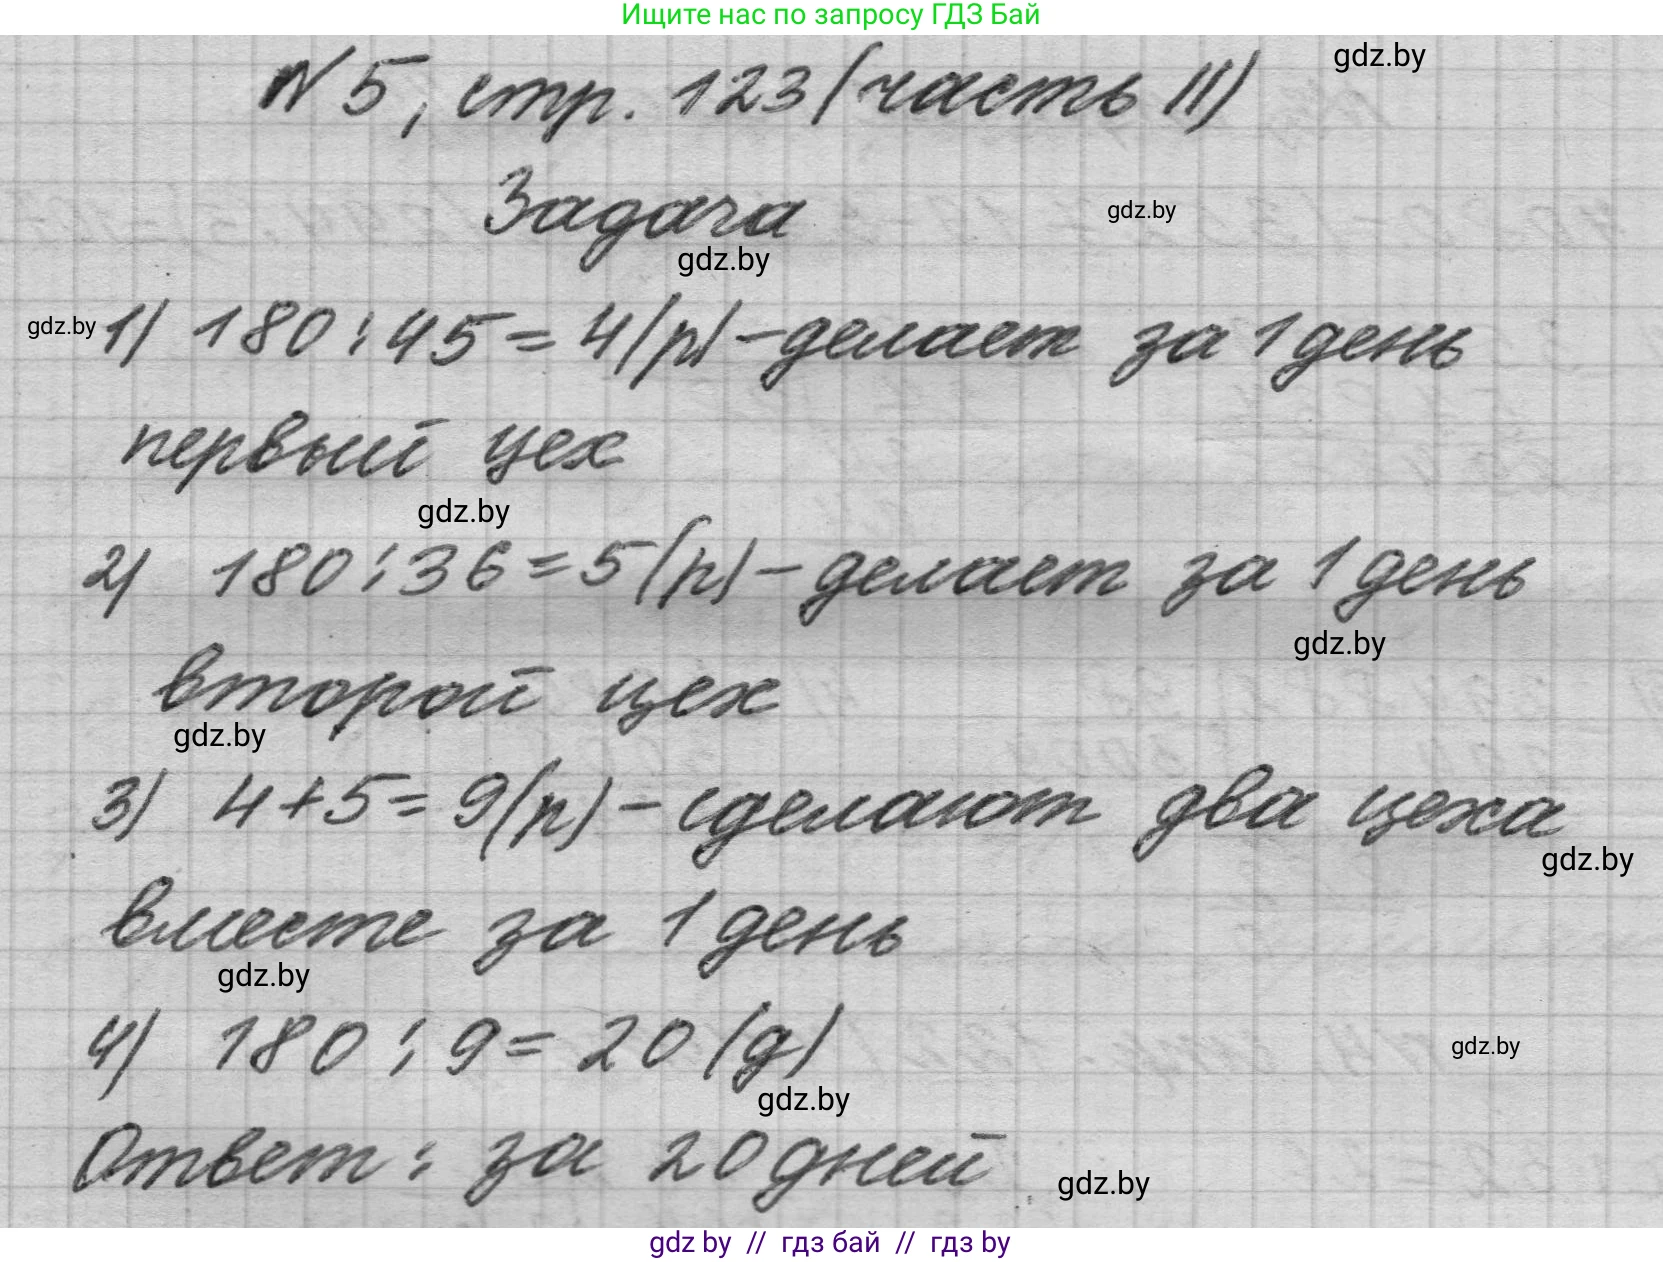 Ищите нас по запросу ГДЗ Бай
N 5, стр. 123 (часть II)
gdz.by
Задача
gdz.by
gdz.by
gdz.by
1) 180 : 45 = 4 (р) - делает за 1 день
первый цех
gdz.by
2) 180 : 36 = 5 (р) - делает за 1 день
gdz.by
второй цех
gdz.by
3) 4 + 5 = 9 (р) - сделают два цеха
gdz.by
вместе за 1 день
gdz.by
4) 180 : 9 = 20 (д)
gdz.by
gdz.by
Ответ: за 20 дней
gdz.by
gdz by // гдз бай // гдз by